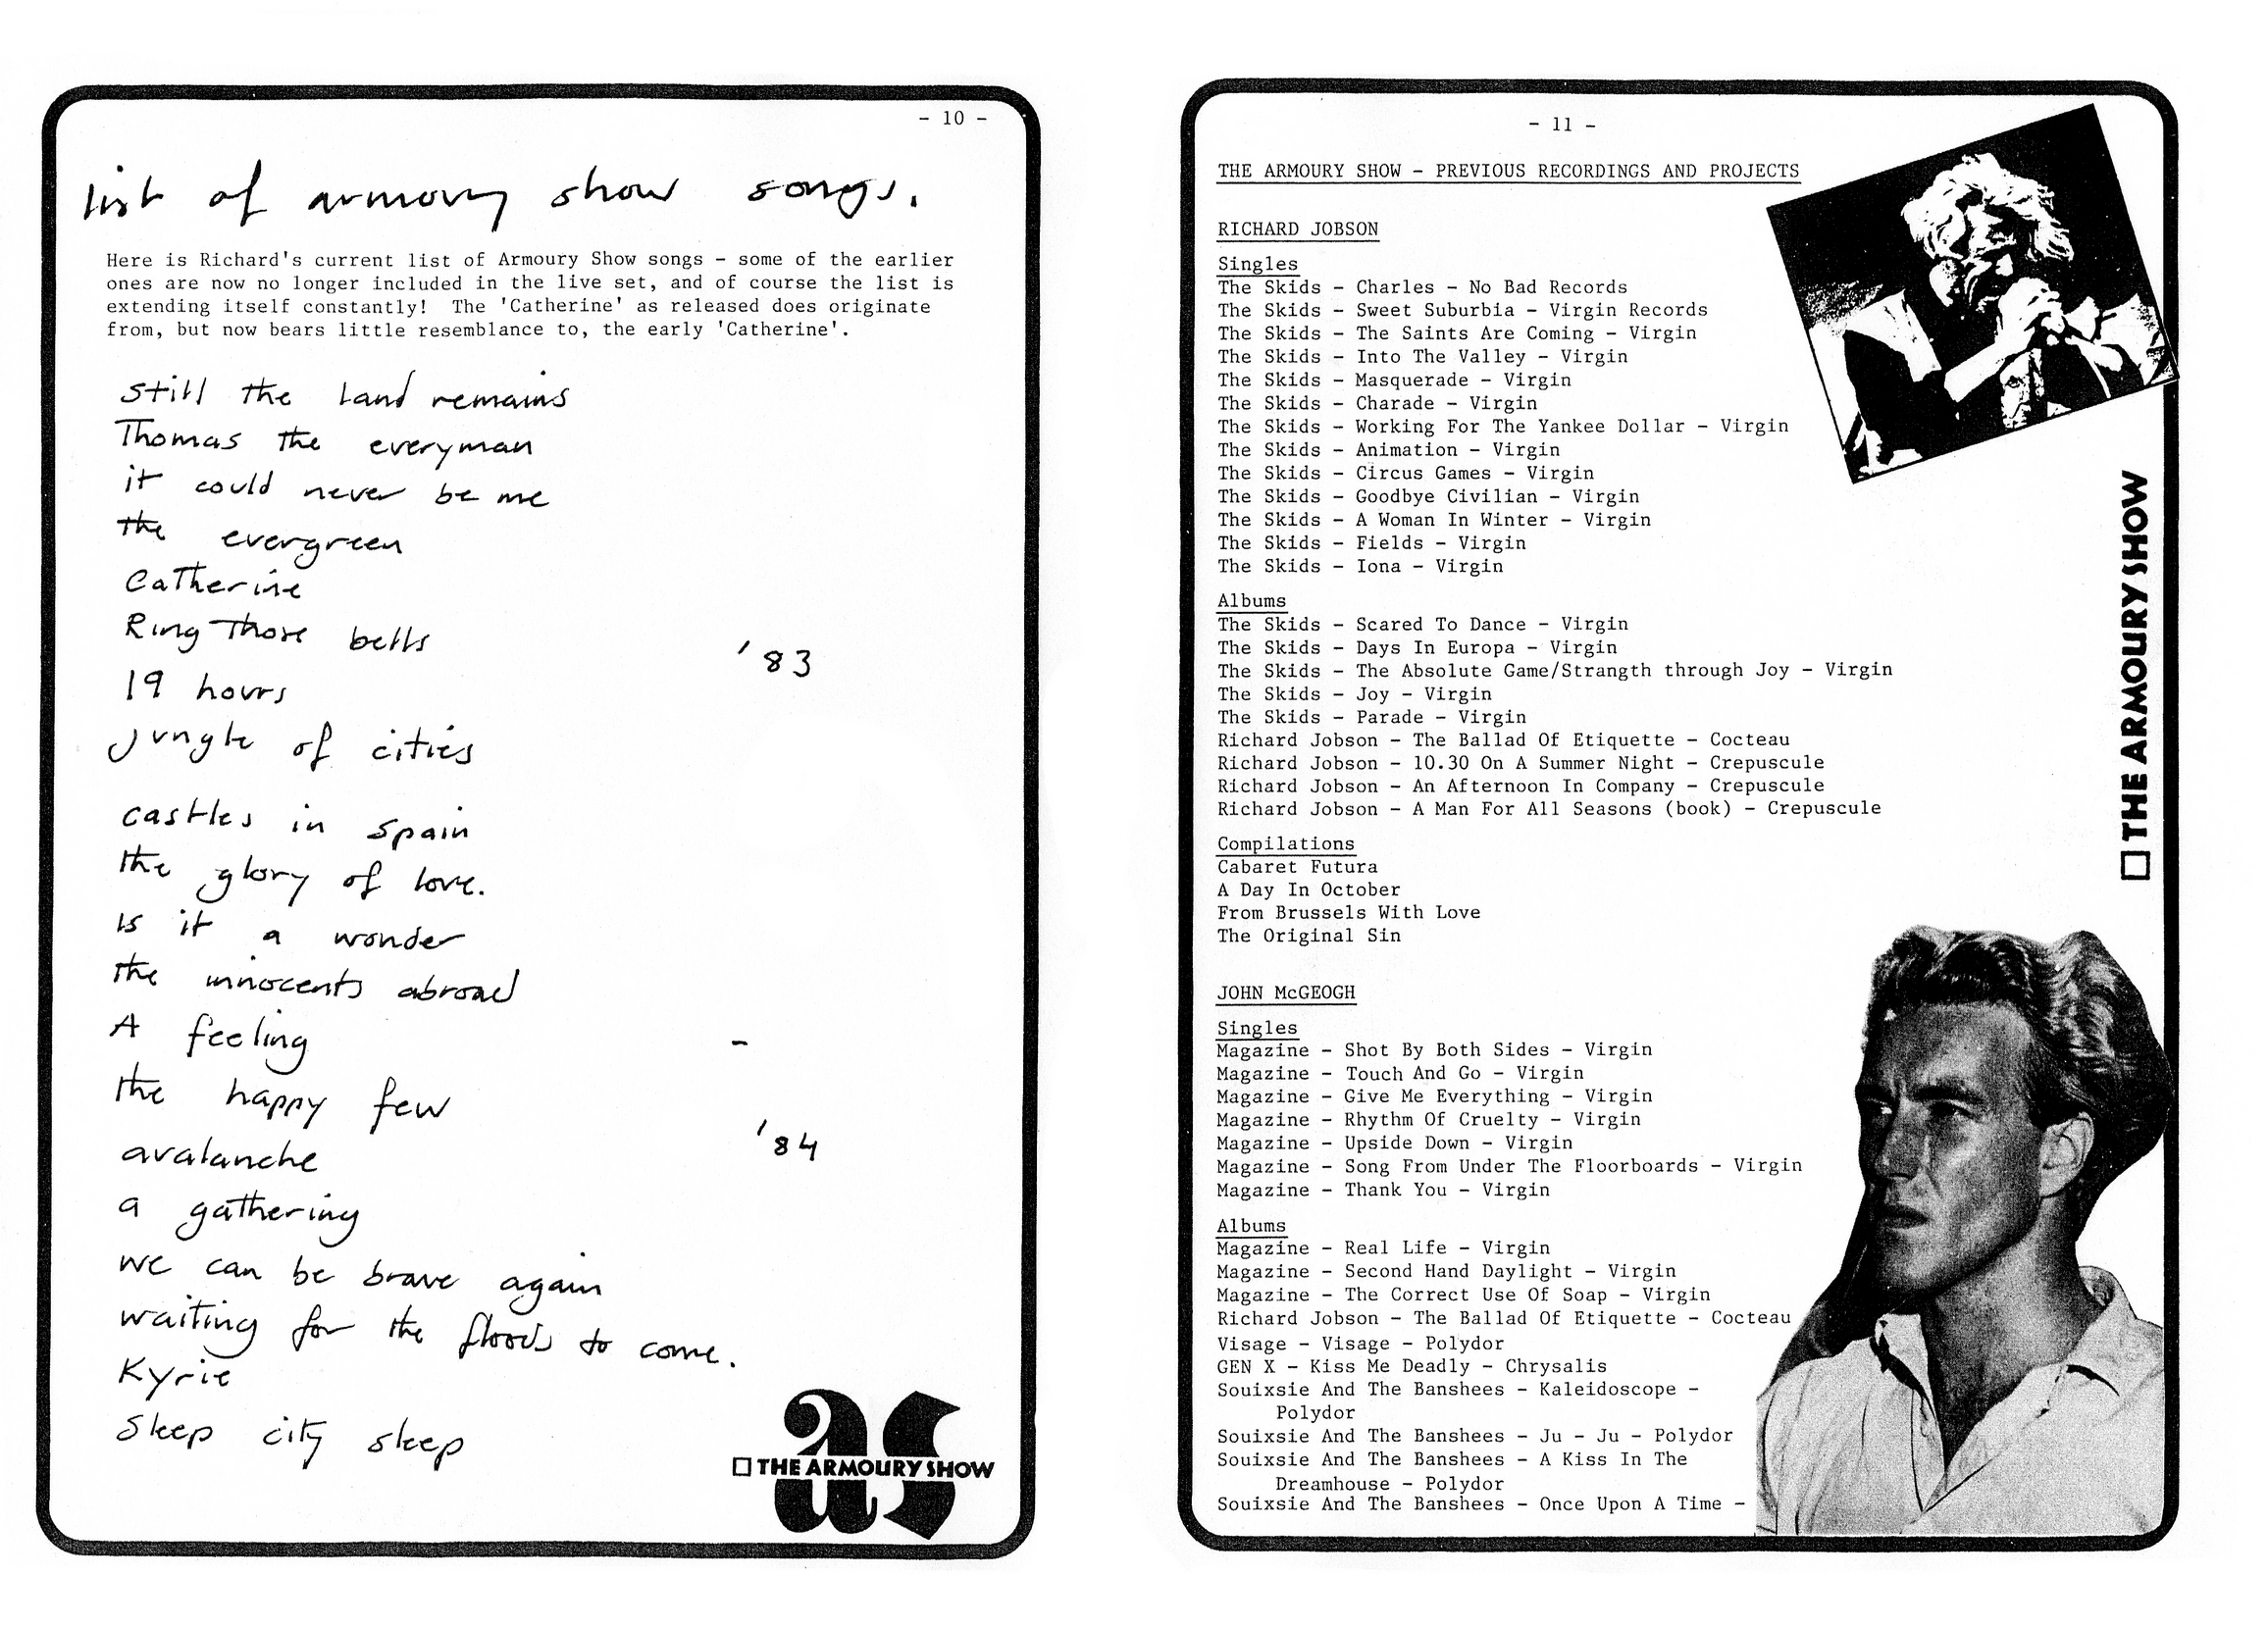 - 10 -
list of armoury show songs.
Here is Richard's current list of Armoury Show songs - some of the earlier
ones are now no longer included in the live set, and of course the list is
extending itself constantly! The 'Catherine' as released does originate
from, but now bears little resemblance to, the early 'Catherine'.
Still the Land remains
Thomas the everyman
it could never be me
the evergreen
Catherine
Ring Those bells
'83
19 hours
jungle of cities
castles in spain
the glory of love.
is it a wonder
the innocents abroad
A feeling
-
the happy few
'84
avalanche
a gathering
we can be brave again
waiting for the floods to come.
Kyrie
Sleep city sleep
as
THE ARMOURY SHOW
- 11 -
THE ARMOURY SHOW - PREVIOUS RECORDINGS AND PROJECTS
RICHARD JOBSON
Singles
The Skids - Charles - No Bad Records
The Skids - Sweet Suburbia - Virgin Records
The Skids - The Saints Are Coming - Virgin
The Skids - Into The Valley - Virgin
The Skids - Masquerade - Virgin
The Skids - Charade - Virgin
The Skids - Working For The Yankee Dollar - Virgin
The Skids - Animation - Virgin
The Skids - Circus Games - Virgin
The Skids - Goodbye Civilian - Virgin
The Skids - A Woman In Winter - Virgin
The Skids - Fields - Virgin
The Skids - Iona - Virgin
Albums
The Skids - Scared To Dance - Virgin
The Skids - Days In Europa - Virgin
The Skids - The Absolute Game/Strangth through Joy - Virgin
The Skids - Joy - Virgin
The Skids - Parade - Virgin
Richard Jobson - The Ballad Of Etiquette - Cocteau
Richard Jobson - 10.30 On A Summer Night - Crepuscule
Richard Jobson - An Afternoon In Company - Crepuscule
Richard Jobson - A Man For All Seasons (book) - Crepuscule
Compilations
Cabaret Futura
A Day In October
From Brussels With Love
The Original Sin
JOHN McGEOGH
Singles
Magazine - Shot By Both Sides - Virgin
Magazine - Touch And Go - Virgin
Magazine - Give Me Everything - Virgin
Magazine - Rhythm Of Cruelty - Virgin
Magazine - Upside Down - Virgin
Magazine - Song From Under The Floorboards - Virgin
Magazine - Thank You - Virgin
Albums
Magazine - Real Life - Virgin
Magazine - Second Hand Daylight - Virgin
Magazine - The Correct Use Of Soap - Virgin
Richard Jobson - The Ballad Of Etiquette - Cocteau
Visage - Visage - Polydor
GEN X - Kiss Me Deadly - Chrysalis
Souixsie And The Banshees - Kaleidoscope -
Polydor
Souixsie And The Banshees - Ju - Ju - Polydor
Souixsie And The Banshees - A Kiss In The
Dreamhouse - Polydor
Souixsie And The Banshees - Once Upon A Time -
THE ARMOURY SHOW